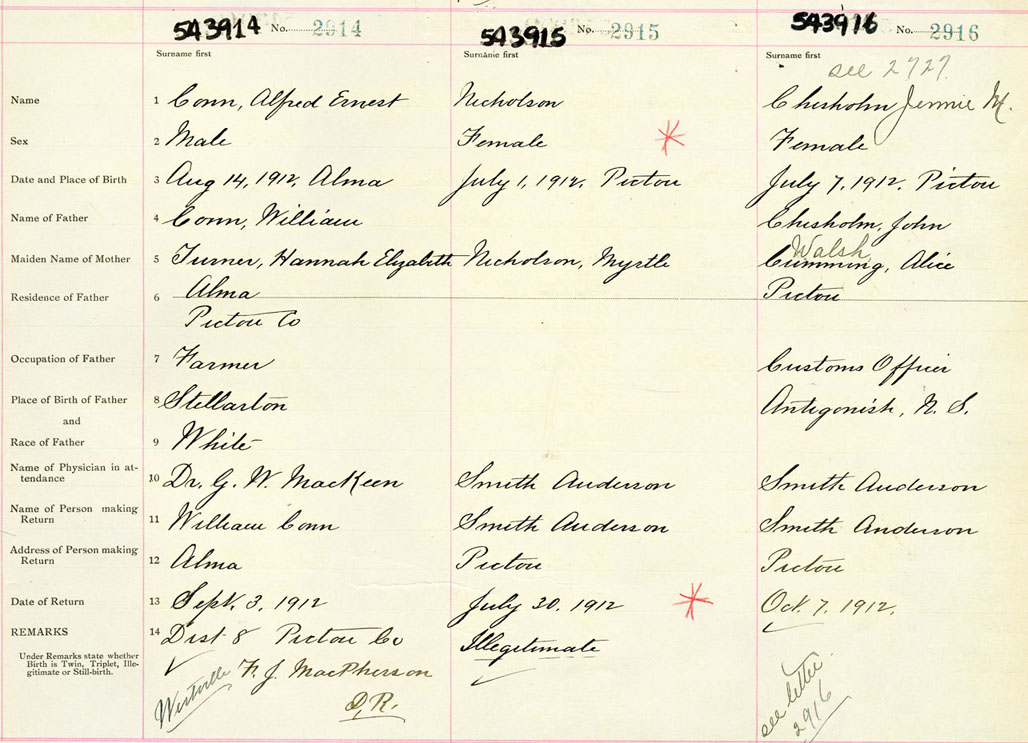 543914 No. 2914 543915 No. 2915 543916 No. 2916
Surname first Surname first Surname first
see 2727
Name 1 Conn, Alfred Ernest Nicholson Chisholm Jennie M.
Sex 2 Male Female Female
Date and Place of Birth 3 Aug 14, 1912, Alma July 1, 1912. Pictou July 7, 1912. Pictou
Name of Father 4 Conn, William Chisholm, John
Walsh
Maiden Name of Mother 5 Turner, Hannah Elizabeth Nicholson, Myrtle Cumming, Alice
Residence of Father 6 Alma Pictou
Pictou Co
Occupation of Father 7 Farmer Customs Officer
Place of Birth of Father 8 Stellarton Antigonish, N. S.
and
Race of Father 9 White
Name of Physician in at-
tendance 10 Dr. G. W. MacKeen Smith Anderson Smith Anderson
Name of Person making
Return 11 William Conn Smith Anderson Smith Anderson
Address of Person making
Return 12 Alma Pictou Pictou
Date of Return 13 Sept. 3, 1912 July 30. 1912 Oct. 7. 1912.
REMARKS 14 Dist 8 Pictou Co Illegitimate
Under Remarks state whether
Birth is Twin, Triplet, Ille-
gitimate or Still-birth.
Westville F. J. MacPherson
D, R.
see letter
2916